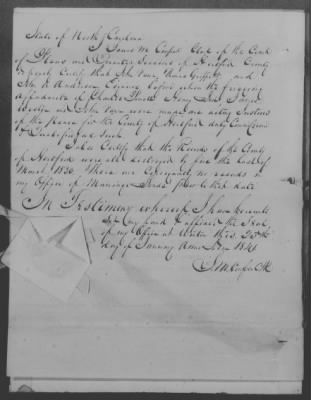 State of North Carolina
I James M. Clk of the Court
of Pleas and Quarter Sessions of Hertford County
hereby Certify that John Vann and
Jno. A. Anderson Esquires before whom the foregoing
affidavits of
and John Vann were made are acting Justices
of the Peace for the County of Hertford duly Commissioned
& qualified as such
I also Certify that the Records of the County
of Hertford were all destroyed by fire the last of
March 1830. There are consequently no records in
my Office of Marriage Bonds prior to that date
In Testimony whereof I have hereunto
set my hand & affixed the Seal
of my Office at Winton this 25th
day of January Anno Dom 1846
Clk